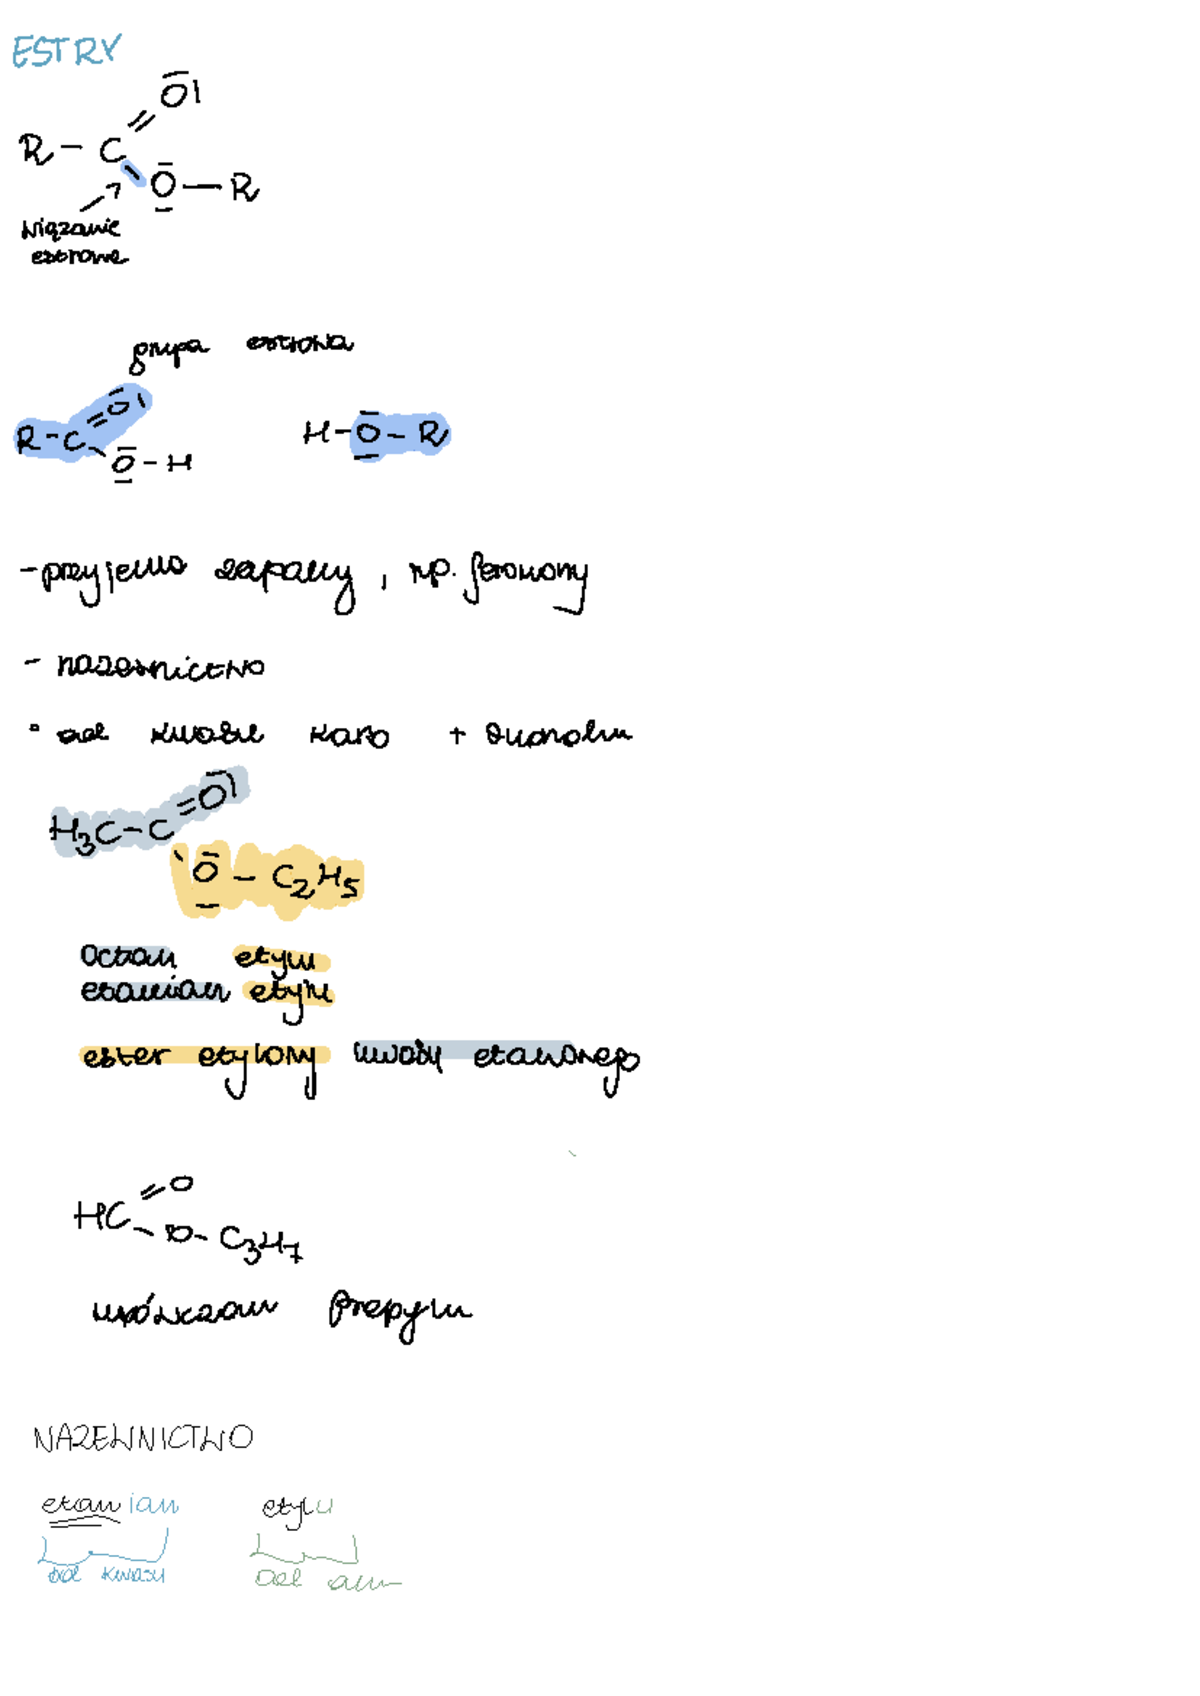 ESTRY
O
R - C = O
O — R
wiązanie
estrowe
grupa estrowa
R - C = O
O - H
H - O - R
- przyjemne zapachy, np. feromony
- nazewnictwo
• od kwasu karbo +
H3C - C = O
O - C2H5
octan etylu
etanian etylu
ester etylowy kwasu etanowego
HC = O
- O - C3H7
mrówczan propylu
NAZEWNICTWO
etanian etylu
od kwasu od